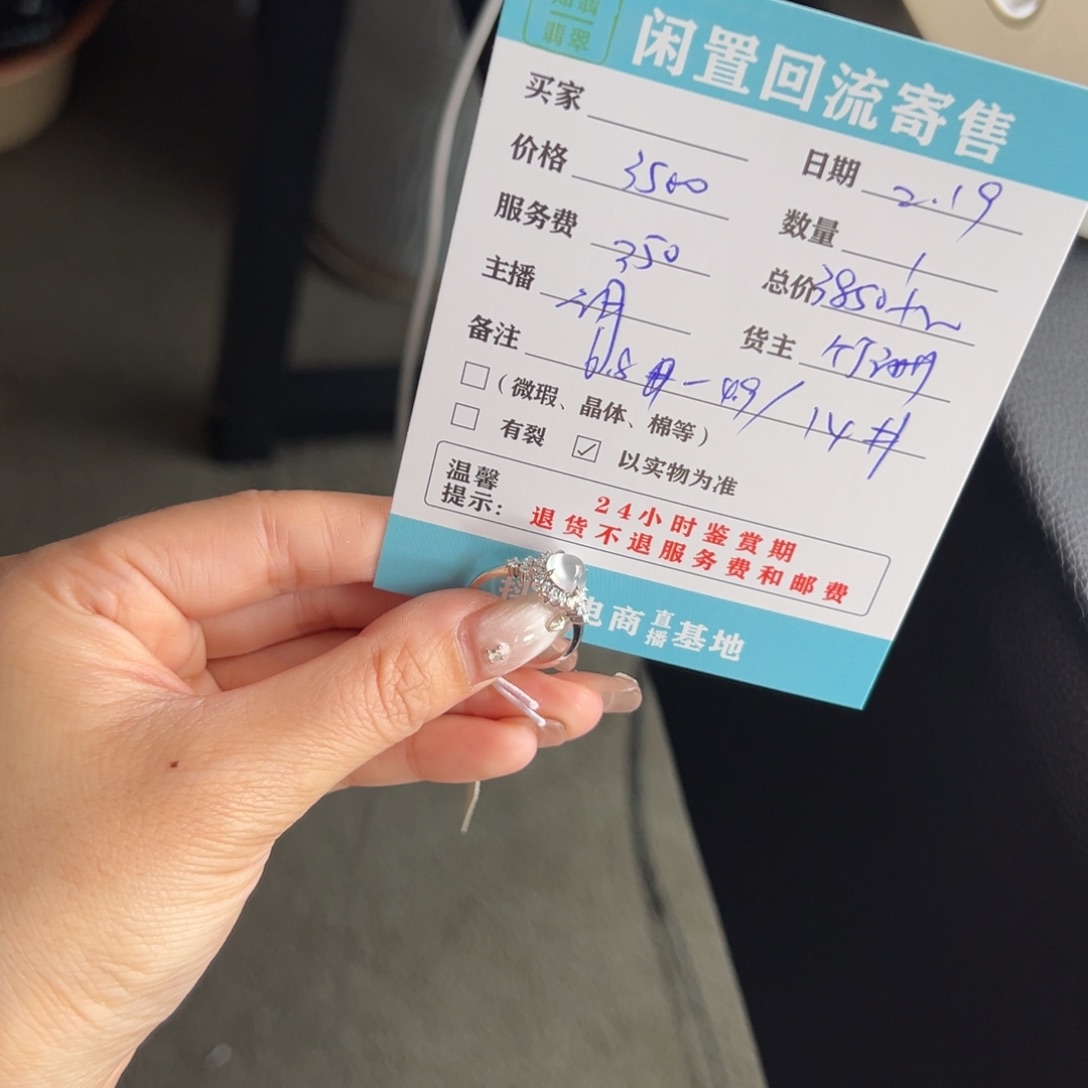 翡翠
闲置回流寄售
买家
日期 2.19
价格 3500
数量 1
服务费 350
总价 3850
主播
货主
备注
14#
(微瑕、晶体、棉等)
有裂 ☑ 以实物为准
温馨提示:
24小时鉴赏期
退货不退服务费和邮费
电商直播基地